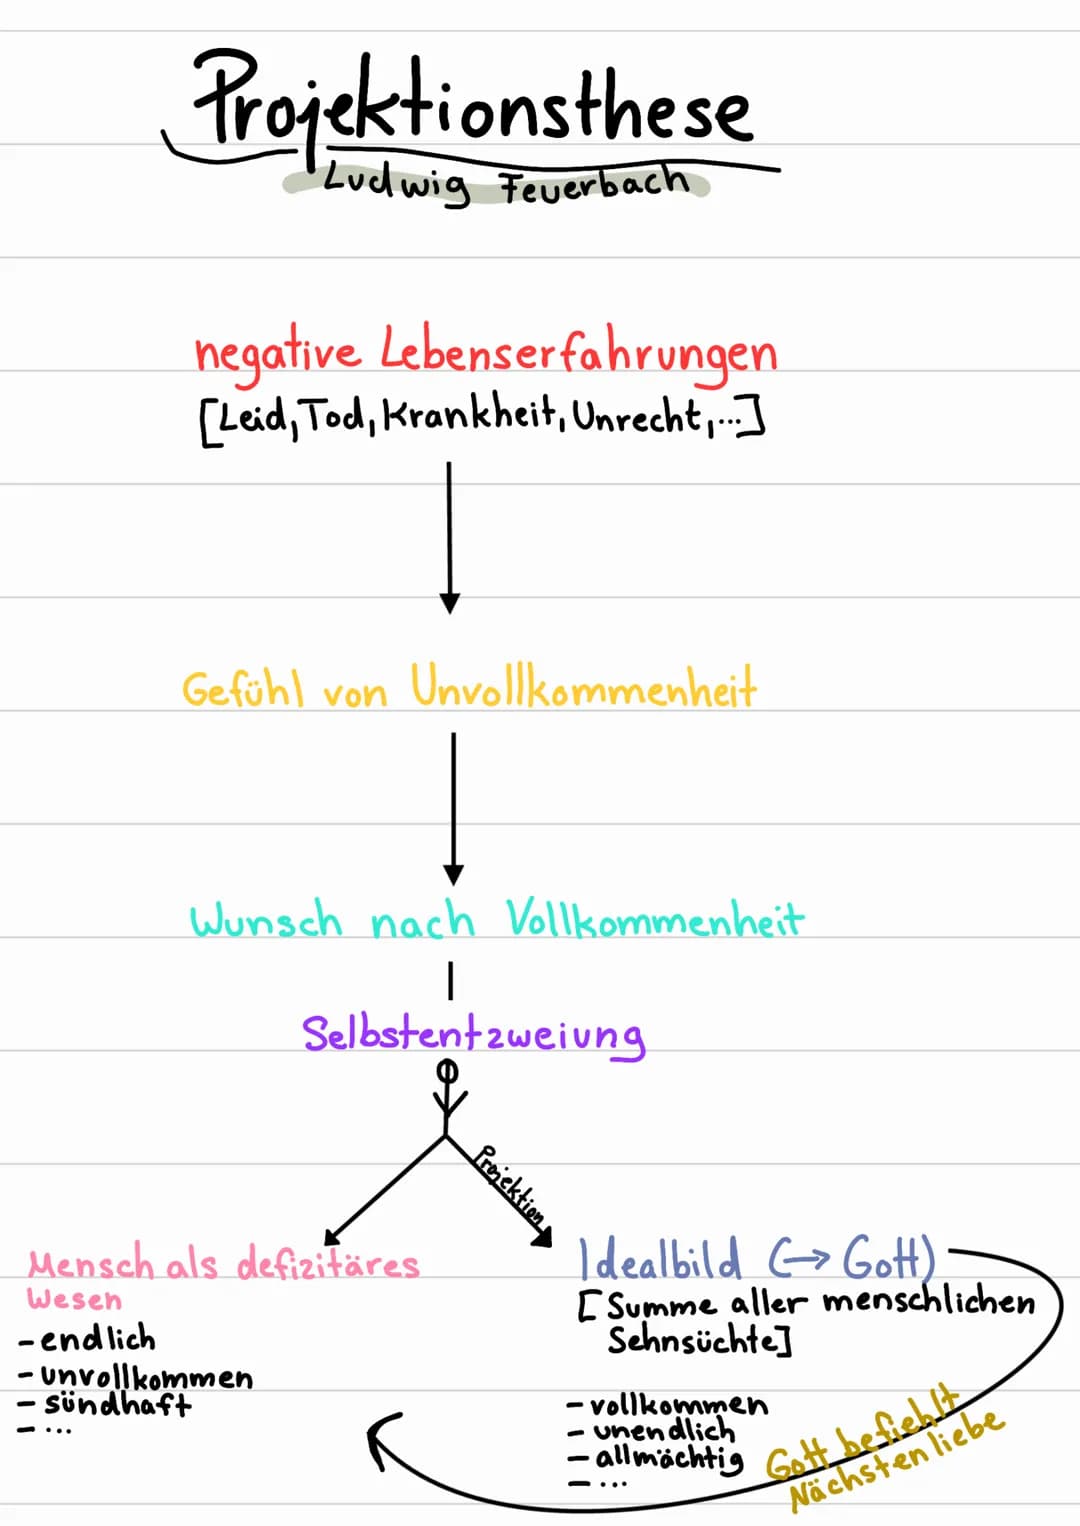 Projektionsthese
Ludwig Feuerbach
negative Lebenserfahrungen
[Leid, Tod, Krankheit, Unrecht, ...]
Gefühl von Unvollkommenheit
Wunsch nach Vollkommenheit
Selbstentzweiung
Projektion
Mensch als defizitäres
Wesen
- endlich
- unvollkommen
- sündhaft
- ...
Idealbild (→ Gott)
[Summe aller menschlichen
Sehnsüchte]
- vollkommen
- unendlich
- allmächtig
- ...
Gott befiehlt
Nächstenliebe